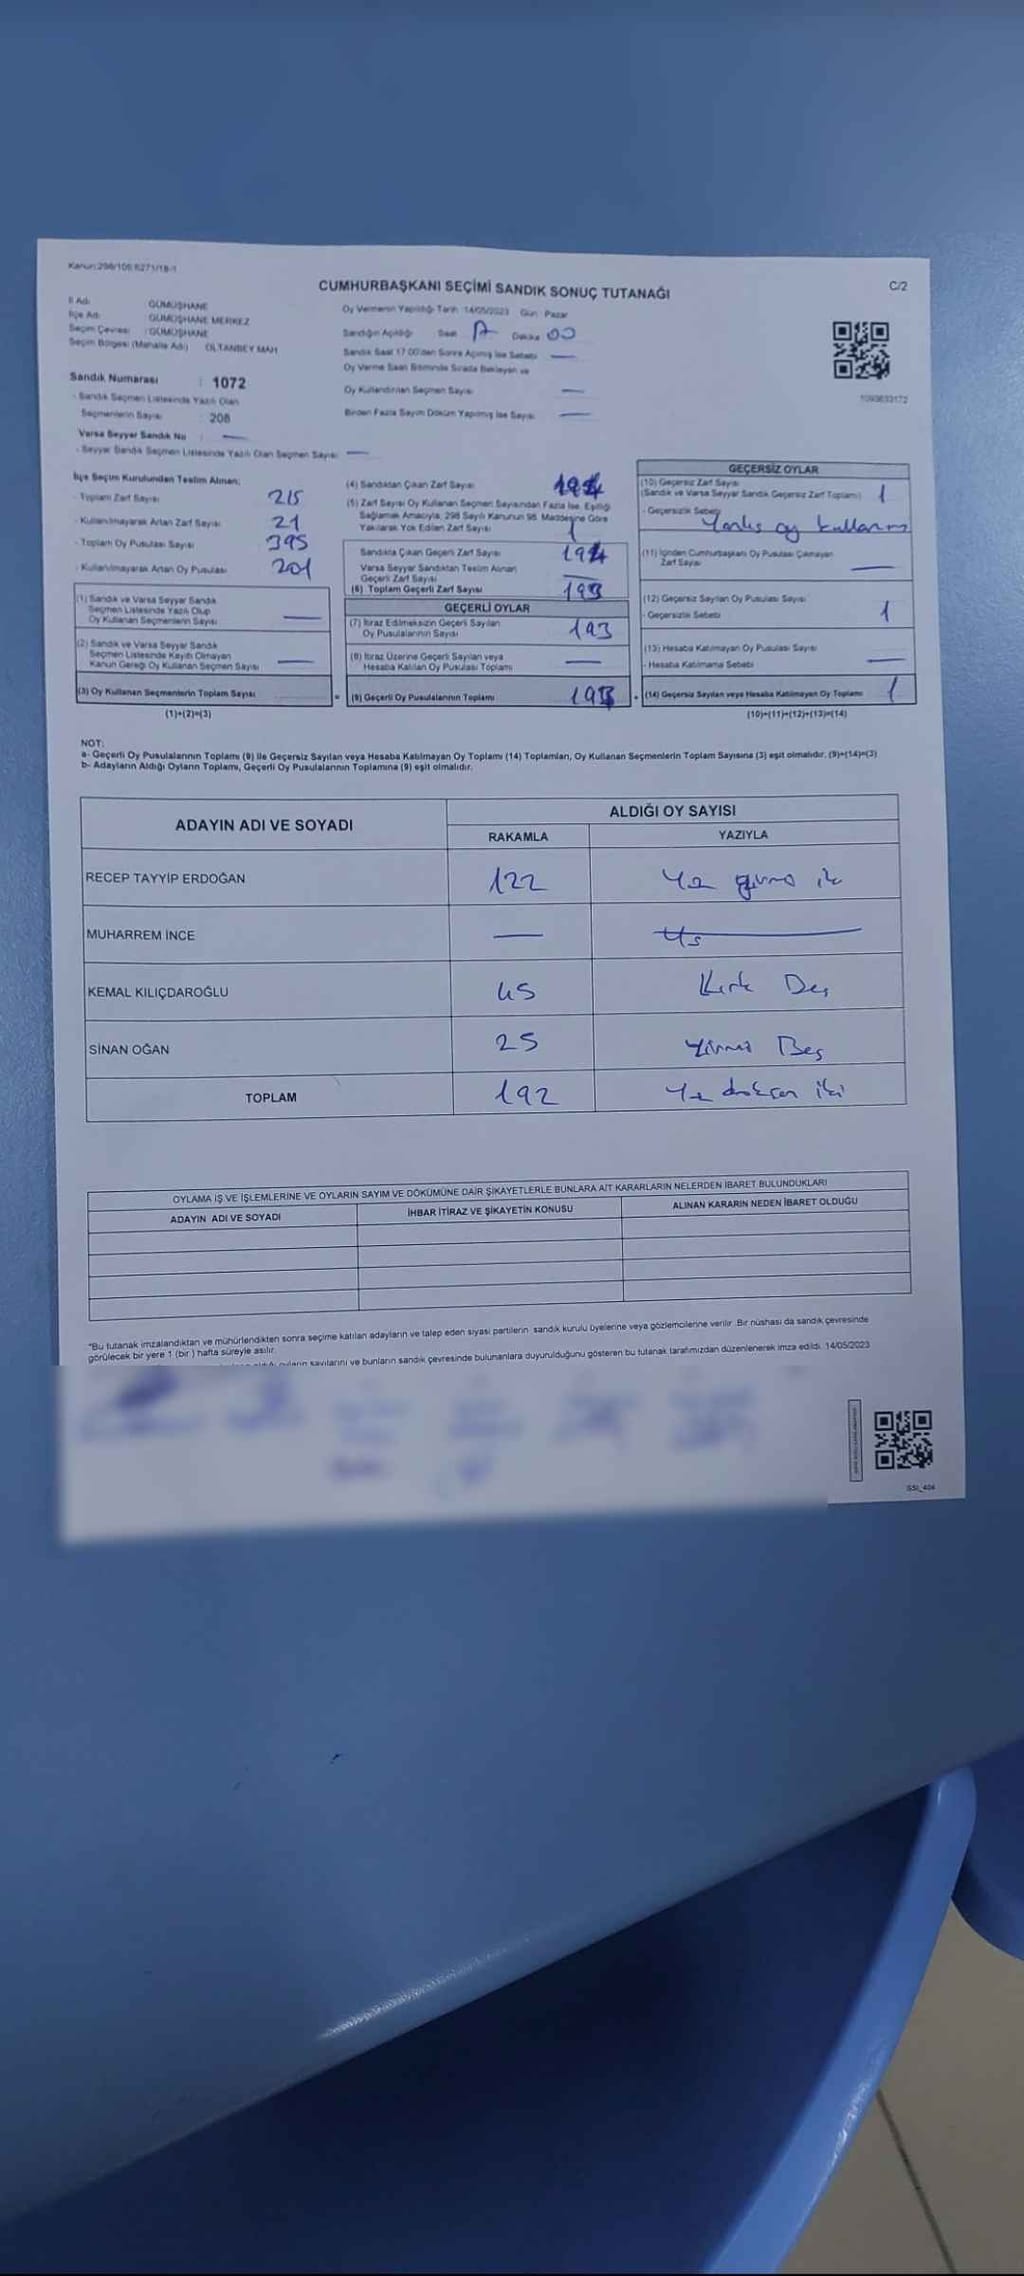 Kanun:298/105,6271/18-1
CUMHURBAŞKANI SEÇİMİ SANDIK SONUÇ TUTANAĞI
C/2
İl Adı : GÜMÜŞHANE
İlçe Adı : GÜMÜŞHANE MERKEZ
Seçim Çevresi : GÜMÜŞHANE
Seçim Bölgesi (Mahalle Adı) OLTANBEY MAH
Oy Vermenin Yapıldığı Tarih 14/05/2023 Gün : Pazar
Sandığın Açıldığı Saat Dakika 00
Sandık Saat 17.00'den Sonra Açılmış İse Sebebi —
Oy Verme Saati Bitiminde Sırada Bekleyen ve
Oy Kullandırılan Seçmen Sayısı —
Birden Fazla Sayım Döküm Yapılmış İse Sayısı —
Sandık Numarası : 1072
- Sandık Seçmen Listesinde Yazılı Olan
Seçmenlerin Sayısı : 208
Varsa Seyyar Sandık No : —
- Seyyar Sandık Seçmen Listesinde Yazılı Olan Seçmen Sayısı —
İlçe Seçim Kurulundan Teslim Alınan;
- Toplam Zarf Sayısı 215
- Kullanılmayarak Artan Zarf Sayısı 21
- Toplam Oy Pusulası Sayısı 395
- Kullanılmayarak Artan Oy Pusulası 201
(1) Sandık ve Varsa Seyyar Sandık
Seçmen Listesinde Yazılı Olup
Oy Kullanan Seçmenlerin Sayısı —
(2) Sandık ve Varsa Seyyar Sandık
Seçmen Listesinde Kayıtlı Olmayan
Kanun Gereği Oy Kullanan Seçmen Sayısı —
(3) Oy Kullanan Seçmenlerin Toplam Sayısı
(1)+(2)=(3)
(4) Sandıktan Çıkan Zarf Sayısı 194
(5) Zarf Sayısı Oy Kullanan Seçmen Sayısından Fazla İse, Eşitliği
Sağlamak Amacıyla, 298 Sayılı Kanunun 98. Maddesine Göre
Yakılarak Yok Edilen Zarf Sayısı 1
Sandıkta Çıkan Geçerli Zarf Sayısı 194
Varsa Seyyar Sandıktan Teslim Alınan
Geçerli Zarf Sayısı —
(6) Toplam Geçerli Zarf Sayısı 193
GEÇERLİ OYLAR
(7) İtiraz Edilmeksizin Geçerli Sayılan
Oy Pusulalarının Sayısı 193
(8) İtiraz Üzerine Geçerli Sayılan veya
Hesaba Katılan Oy Pusulası Toplamı —
= (9) Geçerli Oy Pusulalarının Toplamı 193
GEÇERSİZ OYLAR
(10) Geçersiz Zarf Sayısı
(Sandık ve Varsa Seyyar Sandık Geçersiz Zarf Toplamı) 1
- Geçersizlik Sebebi
Yanlış oy kullanım
(11) İçinden Cumhurbaşkanı Oy Pusulası Çıkmayan
Zarf Sayısı —
(12) Geçersiz Sayılan Oy Pusulası Sayısı
- Geçersizlik Sebebi 1
(13) Hesaba Katılmayan Oy Pusulası Sayısı
- Hesaba Katılmama Sebebi —
+ (14) Geçersiz Sayılan veya Hesaba Katılmayan Oy Toplamı 1
(10)+(11)+(12)+(13)=(14)
NOT:
a- Geçerli Oy Pusulalarının Toplamı (9) ile Geçersiz Sayılan veya Hesaba Katılmayan Oy Toplamı (14) Toplamları, Oy Kullanan Seçmenlerin Toplam Sayısına (3) eşit olmalıdır. (9)+(14)=(3)
b- Adayların Aldığı Oyların Toplamı, Geçerli Oy Pusulalarının Toplamına (9) eşit olmalıdır.
ADAYIN ADI VE SOYADI
ALDIĞI OY SAYISI
RAKAMLA YAZIYLA
RECEP TAYYİP ERDOĞAN 122 Yüz yirmi iki
MUHARREM İNCE —
KEMAL KILIÇDAROĞLU 45 Kırk Beş
SİNAN OĞAN 25 Yirmi Beş
TOPLAM 192 Yüz doksan iki
OYLAMA İŞ VE İŞLEMLERİNE VE OYLARIN SAYIM VE DÖKÜMÜNE DAİR ŞİKAYETLERLE BUNLARA AİT KARARLARIN NELERDEN İBARET BULUNDUKLARI
ADAYIN ADI VE SOYADI İHBAR İTİRAZ VE ŞİKAYETİN KONUSU ALINAN KARARIN NEDEN İBARET OLDUĞU
*Bu tutanak imzalandıktan ve mühürlendikten sonra seçime katılan adayların ve talep eden siyasi partilerin sandık kurulu üyelerine veya gözlemcilerine verilir. Bir nüshası da sandık çevresinde
görülecek bir yere 1 (bir) hafta süreyle asılır.
oyların sayılarını ve bunların sandık çevresinde bulunanlara duyurulduğunu gösteren bu tutanak tarafımızdan düzenlenerek imza edildi. 14/05/2023